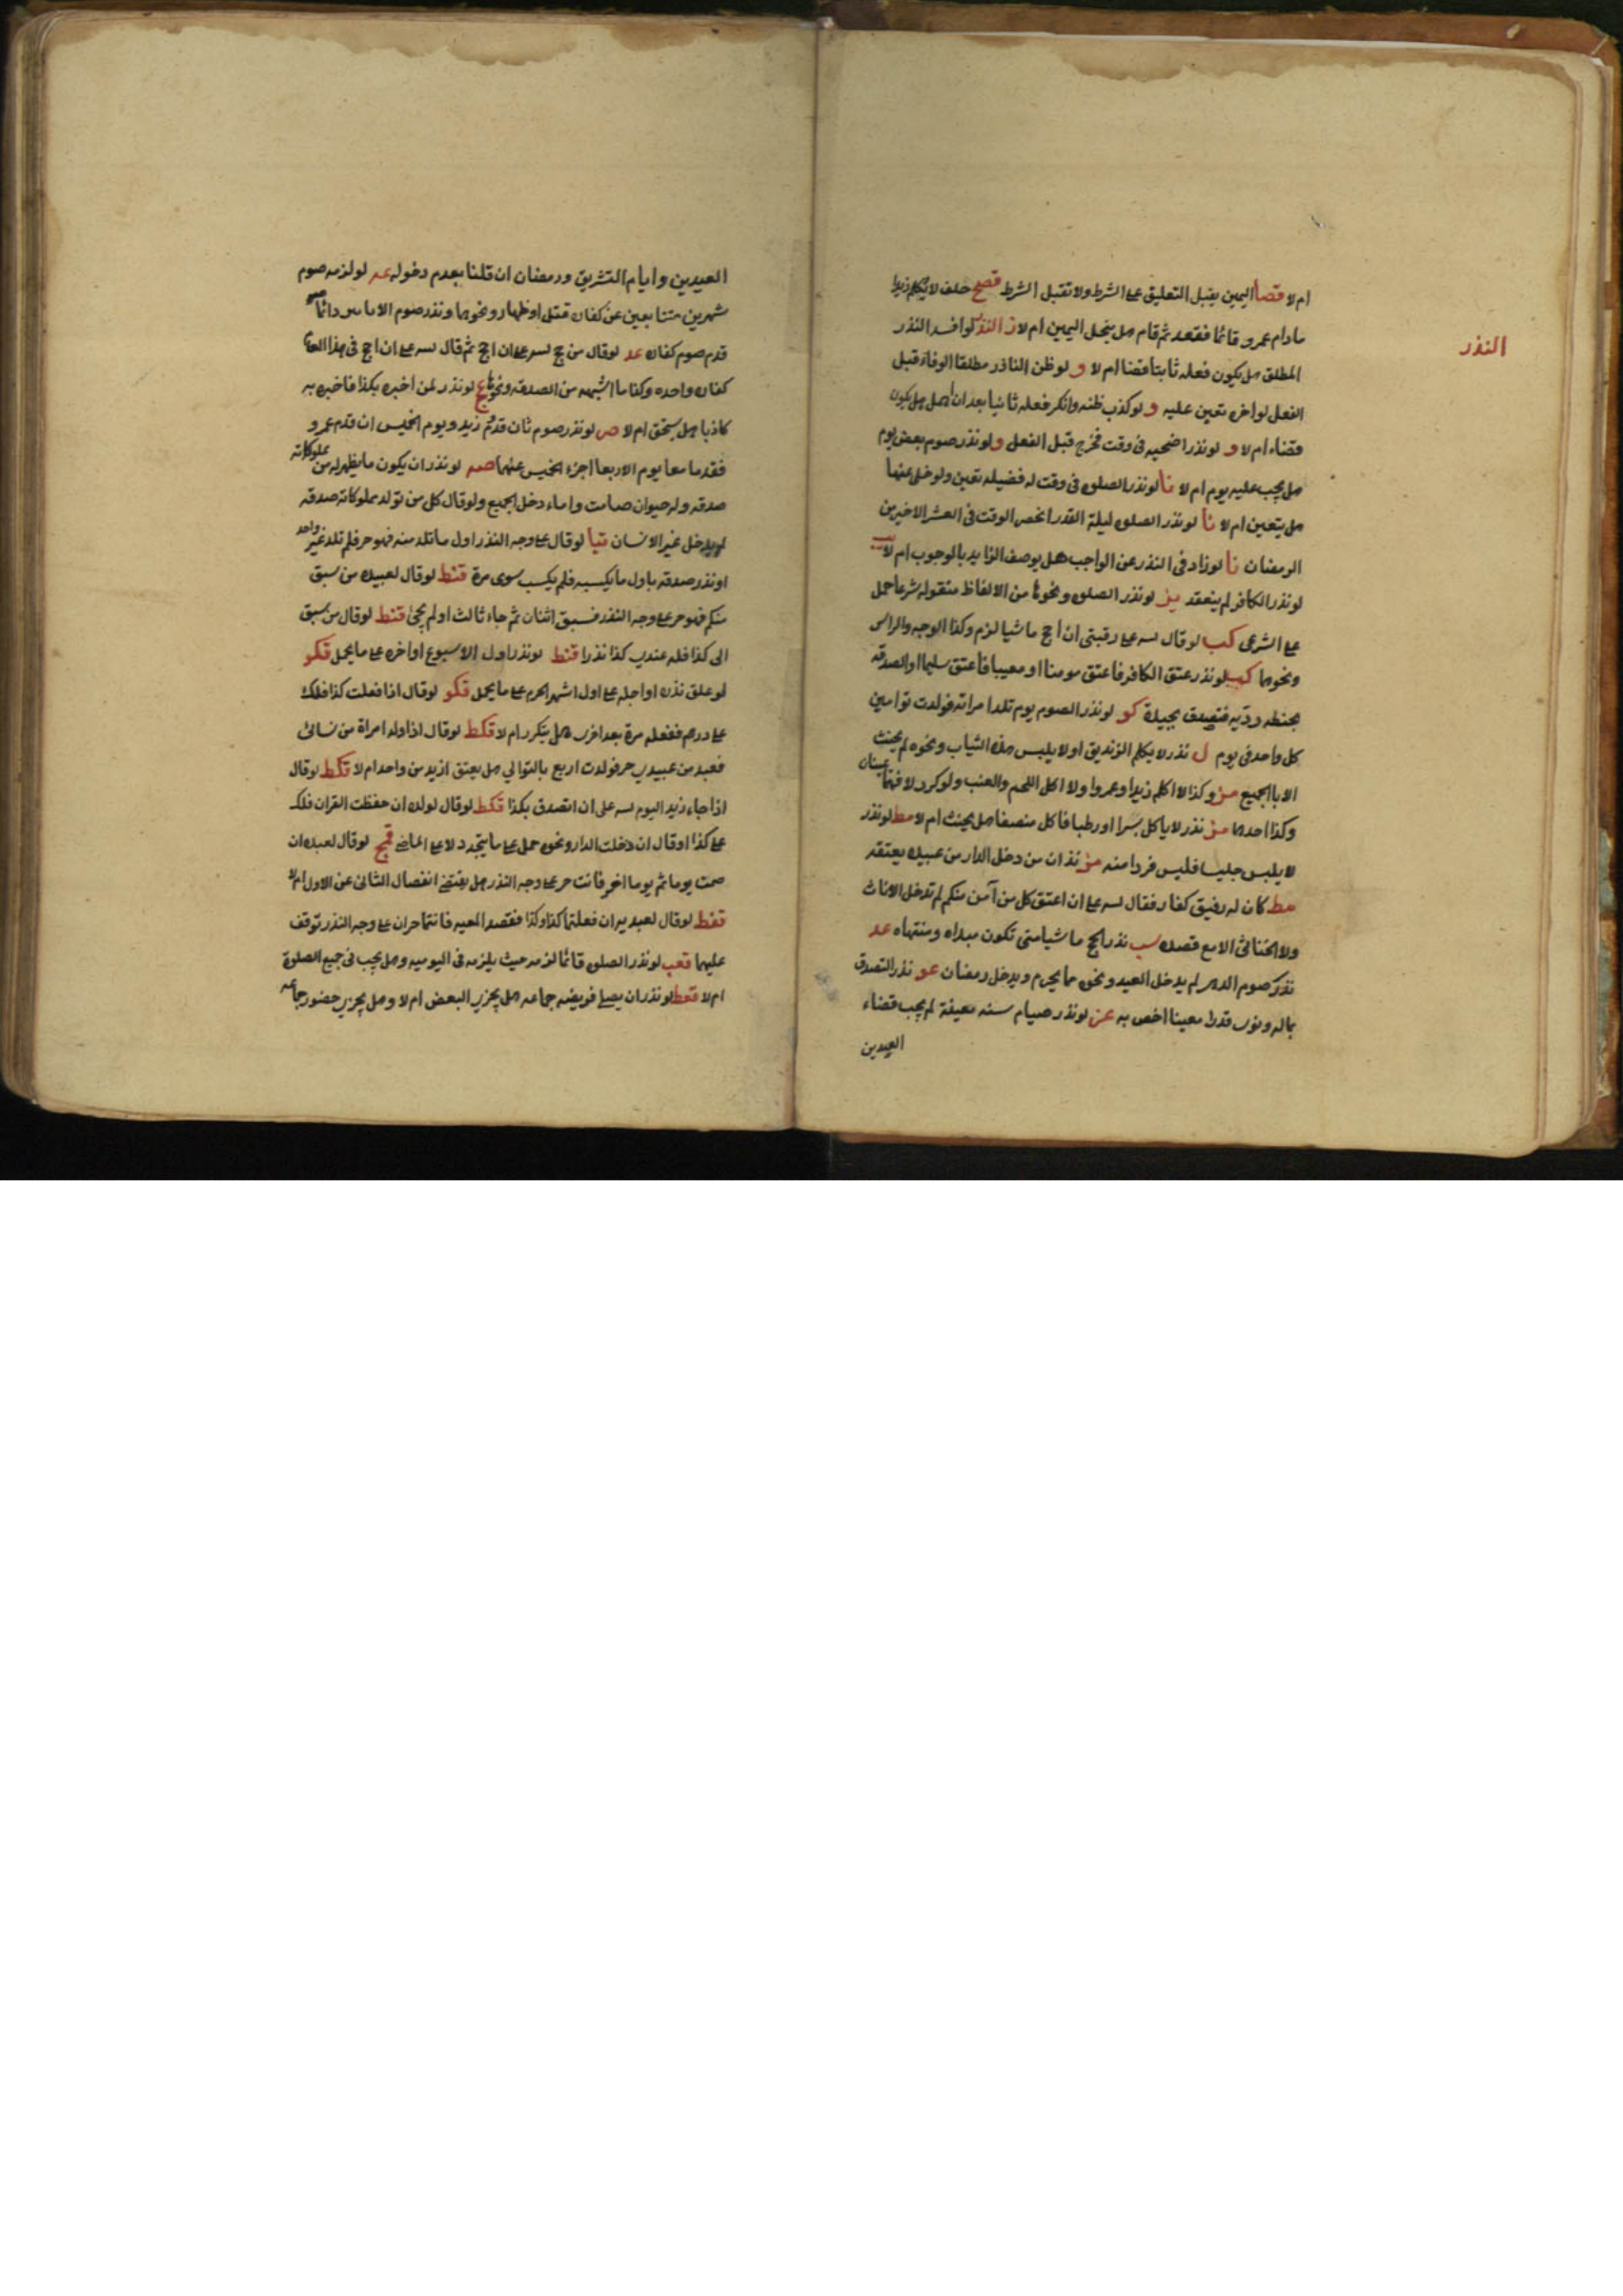 النذر
ام لا قصا اليمين يقبل التعليق على الشرط ولا تقبل الشرط قصح حلف لا يكلم زيدا
مادام عمرو قائما فقعد ثم قام هل ينحل اليمين ام لا ن النذر لو افسد النذر
المطلق هل يكون فعله ثانيا قضا ام لا و لو ظن الناذر مطلقا الوفاة قبل
الفعل لو اخره تعين عليه و لو كذب ظنه وانكر فعله ثانيا بعد ان هل يكون
قضاء ام لا و لو نذر اضحيه فى وقت فخرج قبل الفعل و لو نذر صوم بعض يوم
هل يجب عليه يوم ام لا نا لو نذر الصلوة فى وقت له فضيلة تعين ولو خلى عنها
هل يتعين ام لا نا لو نذر الصلوة ليلة القدر انحصر الوقت فى العشر الاخير من
الرمضان نا لو زاد فى النذر عن الواجب هل يوصف الزايد بالوجوب ام لا
لو نذر الكافر لم ينعقد يز لو نذر الصلوة ونحوها من الالفاظ منقولة شرعا حمل
على الشرعى كب لو قال لله على رقبتى ان احج ماشيا لزم وكذا الوجه والراس
ونحوها كب لو نذر عتق الكافر فاعتق مومنا او معيبا فاعتق سليما او الصدقه
بحنطه رديه فتصدق بجيدة كو لو نذر الصوم يوم تلد امراته فولدت توامين
كل واحد فى يوم ل نذر لا يكلم الزنديق او لا يلبس هذه الثياب ونحوه لم يحنث
الا بالجميع مز وكذا لا اكلم زيدا وعمروا ولا اكل اللحم والعنب ولو كرر لا فهما يمينان
وكذا احدها مز نذر لا ياكل بسرا او رطبا فاكل منصفا هل يحنث ام لا مط لو نذر
لا يلبس حليا فلبس فردا منه مز نذر ان من دخل الدار من عبيده يعتقه
مط كان له رقيق كفار فقال لله على ان اعتق كل من آمن منكم لم تدخل الاناث
ولا الخناثى الا مع قصده سب نذر الحج ماشيا متى تكون مبداه ومنتهاه عد
نذر صوم الدهر لم يدخل العيد ونحوه مما يحرم ويدخل رمضان عو نذر التصدق
بماله ونوى قدرا معينا اختص به عز لو نذر صيام سنه معينة لم يجب قضاء
العيدين
العيدين وايام التشريق ورمضان ان قلنا بعدم دخوله عد لو لزمه صوم
شهرين متتابعين عن كفارة قتل او ظهار ونحوها ونذر صوم دائما
قدم صوم كفاره عد لو قال من حج لله على ان احج ثم قال لله على ان احج فى هذا العام
كفاره واحده وكذا ما اشبهه من الصدقه ونحوها لو نذر لمن اخبره بكذا فاخبره به
كاذبا هل يستحق ام لا ص لو نذر صوم ثان قدوم زيد ويوم الخميس ان قدم عمرو
فقدما معا يوم الاربعا اجزء الخميس عنهما صه لو نذر ان يكون ما يظهر له من مملوكاته
صدقه وله حيوان صامت واماء دخل الجميع ولو قال كل من تولد مملوكاته صدقه
لم يدخل غير الانسان قيا لو قال على وجه النذر اول ما تلد منه فهو حر فلم تلد غير واحد
او نذر صدقه باول ما يكسبه فلم يكسب سوى مرة قنط لو قال لعبيده من سبق
منكم فهو حر على وجه النذر فسبق اثنان ثم جاء ثالث او لم يجئ قنط لو قال من سبق
الى كذا فله عندى كذا نذرا قنط لو نذر اول الاسبوع او اخره على ما يحمل قكو
لو علق نذره او اجله على اول اشهر الحرم على ما يحمل قكو لو قال اذا فعلت كذا فلك
على درهم ففعله مرة بعد اخرى هل يتكرر ام لا قكط لو قال اذا ولد امراة من نسائى
فعبد من عبيدى حر فولدت اربع بالتوالي هل يعتق ازيد من واحد ام لا قكط لو قال
اذا جاء زيد اليوم لله على ان اتصدق بكذا قكط لو قال لولده ان حفظت القران فلك
على كذا او قال ان دخلت الدار ونحوه حمل على ما يتجدد لا على الماضى قمج لو قال لعبده ان
صمت يوما ثم يوما اخر فانت حر على وجه النذر هل يقتضى انفصال الثانى عن الاول ام لا
قفط لو قال لعبديه ان فعلتما كذا وكذا فقصد المعيه فانتما حران على وجه النذر توقف
عليهما قعب لو نذر الصلوة قائما لزمه حيث يلزمه فى اليوميه وهل يجب فى جميع الصلوة
ام لا قعط لو نذر ان يصلى فريضه جماعه هل يجزى البعض ام لا وهل يجزى حضور جماعه